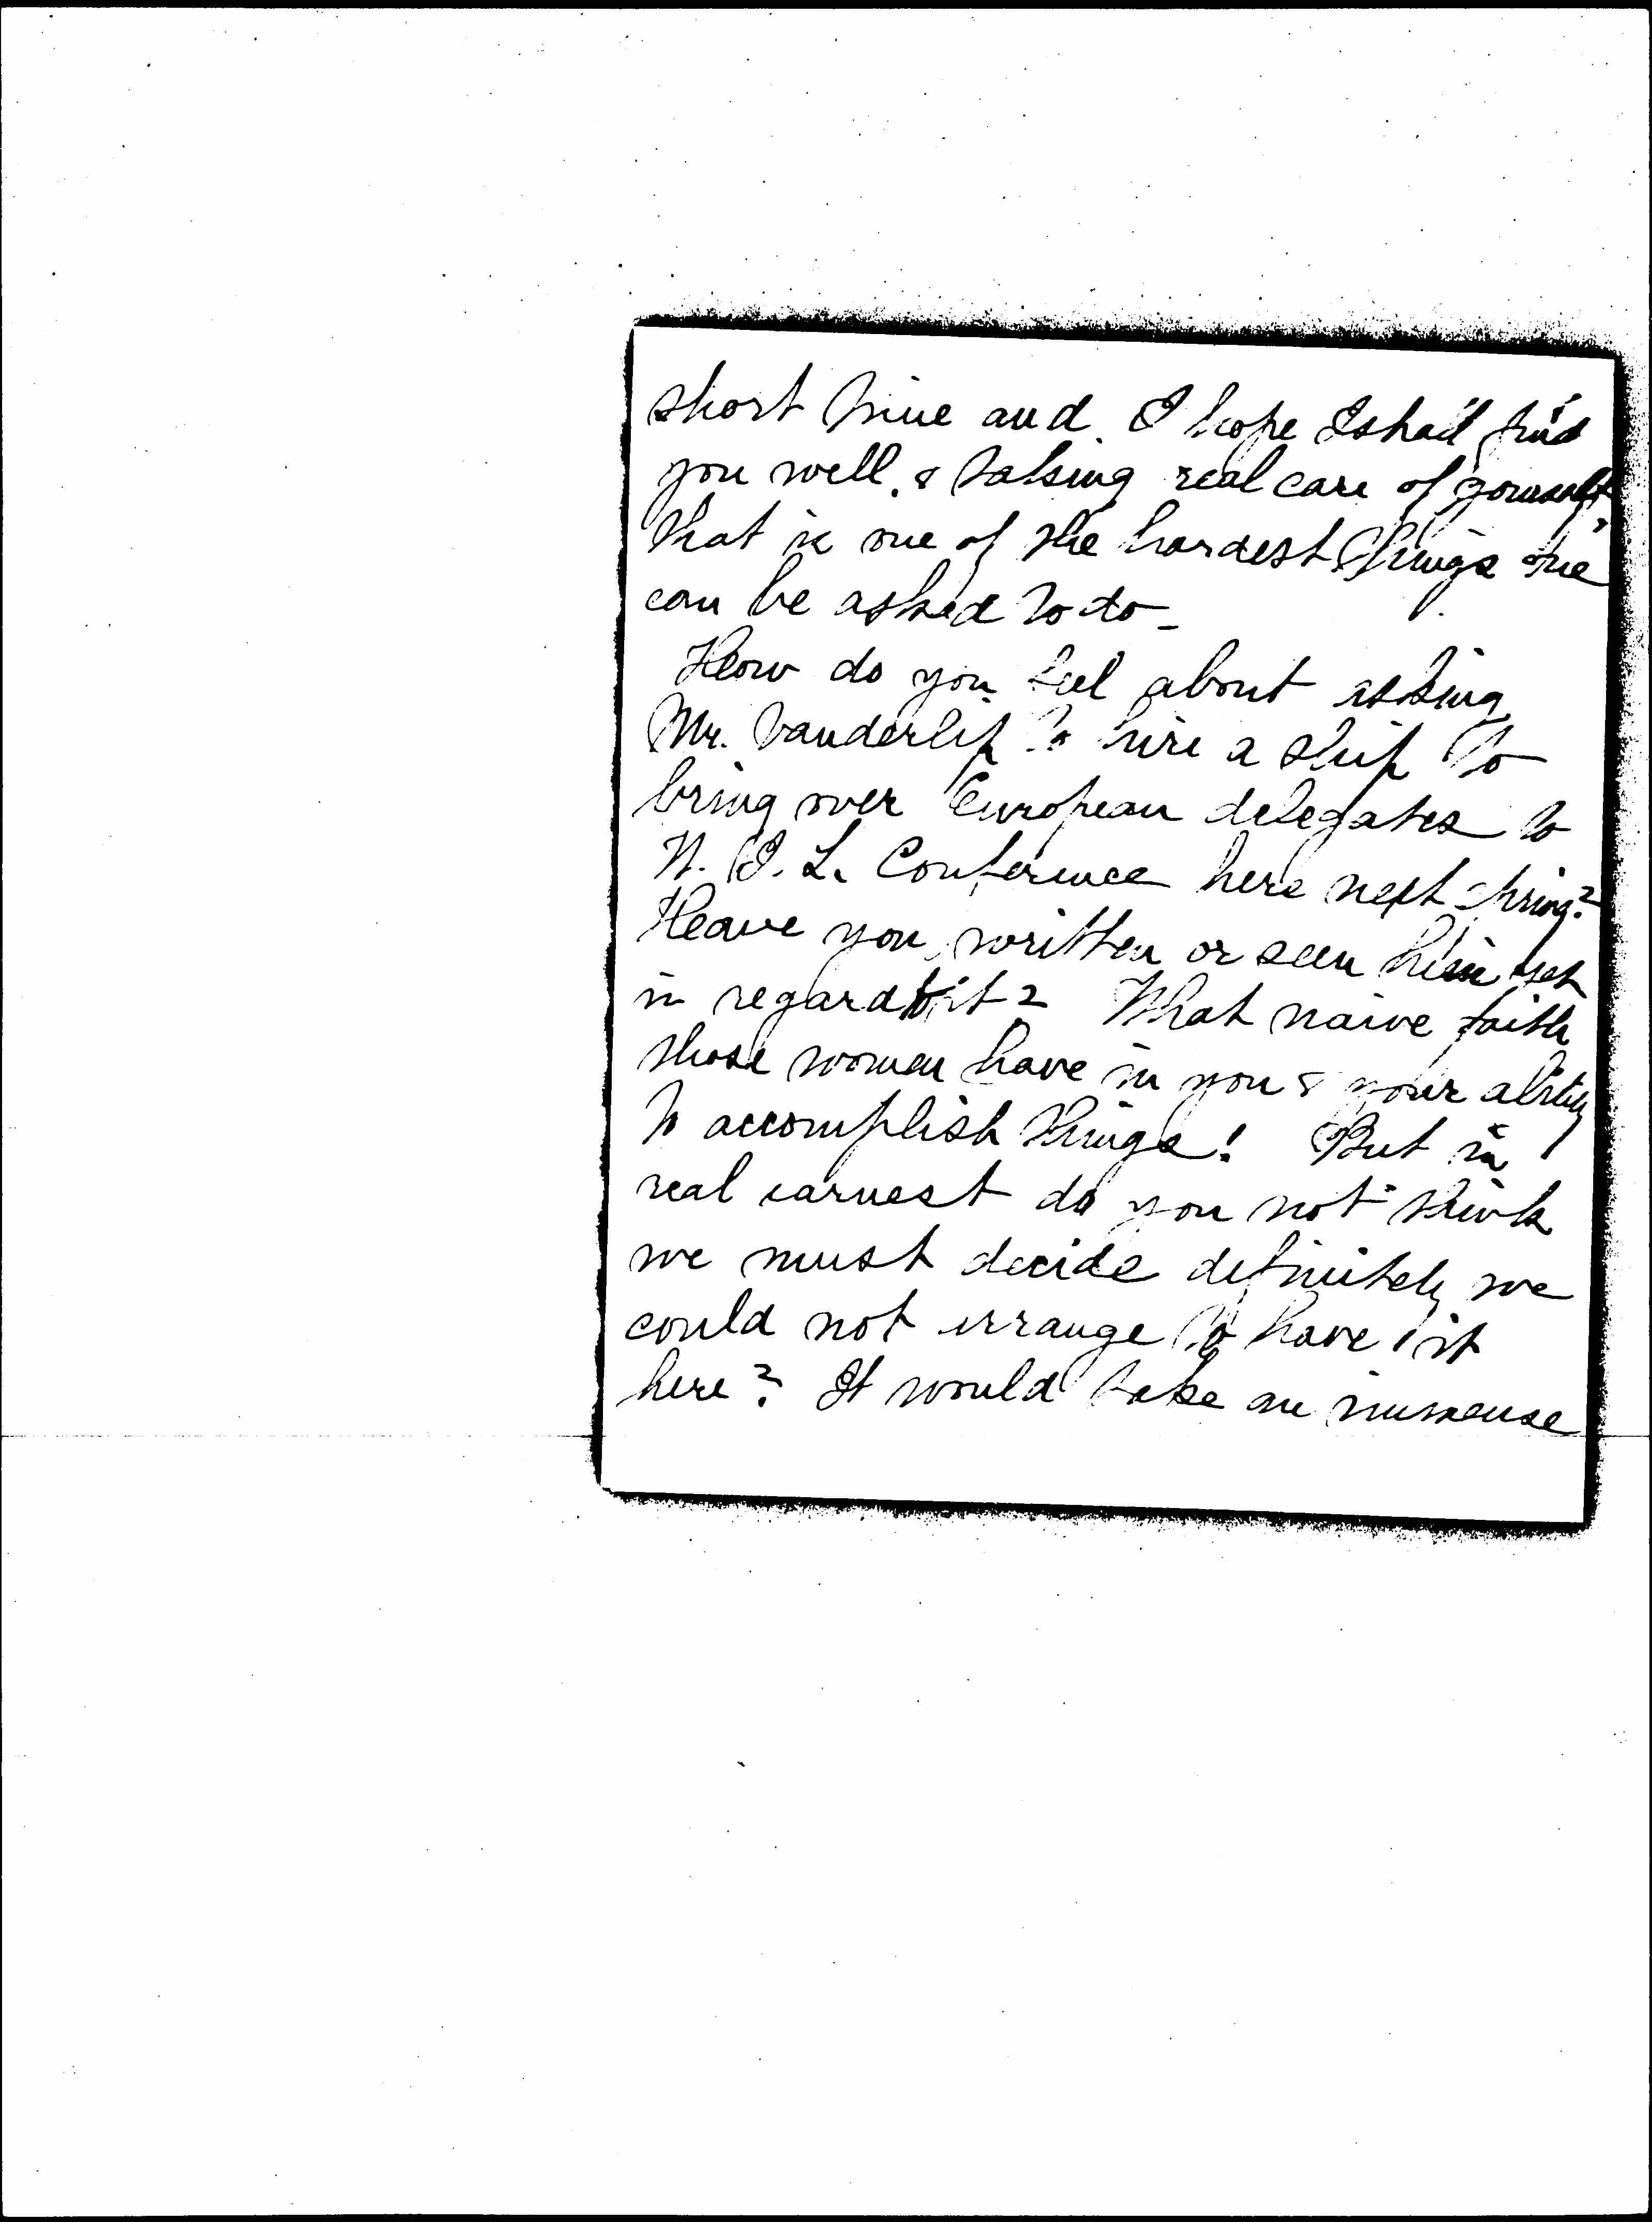 short time and. I hope I shall find
you well. & taking real care of yourself,
that is one of the hardest things one
can be asked to do -
How do you feel about asking
Mr. Vanderlip to hire a ship to
bring over European delegates to
W. I. L. Conference here next spring?
Have you written or seen him yet
in regard to it? What naive faith
those women have in you & your ability
to accomplish things! But in
real earnest do you not think
we must decide definitely we
could not arrange to have it
here? It would take an immense